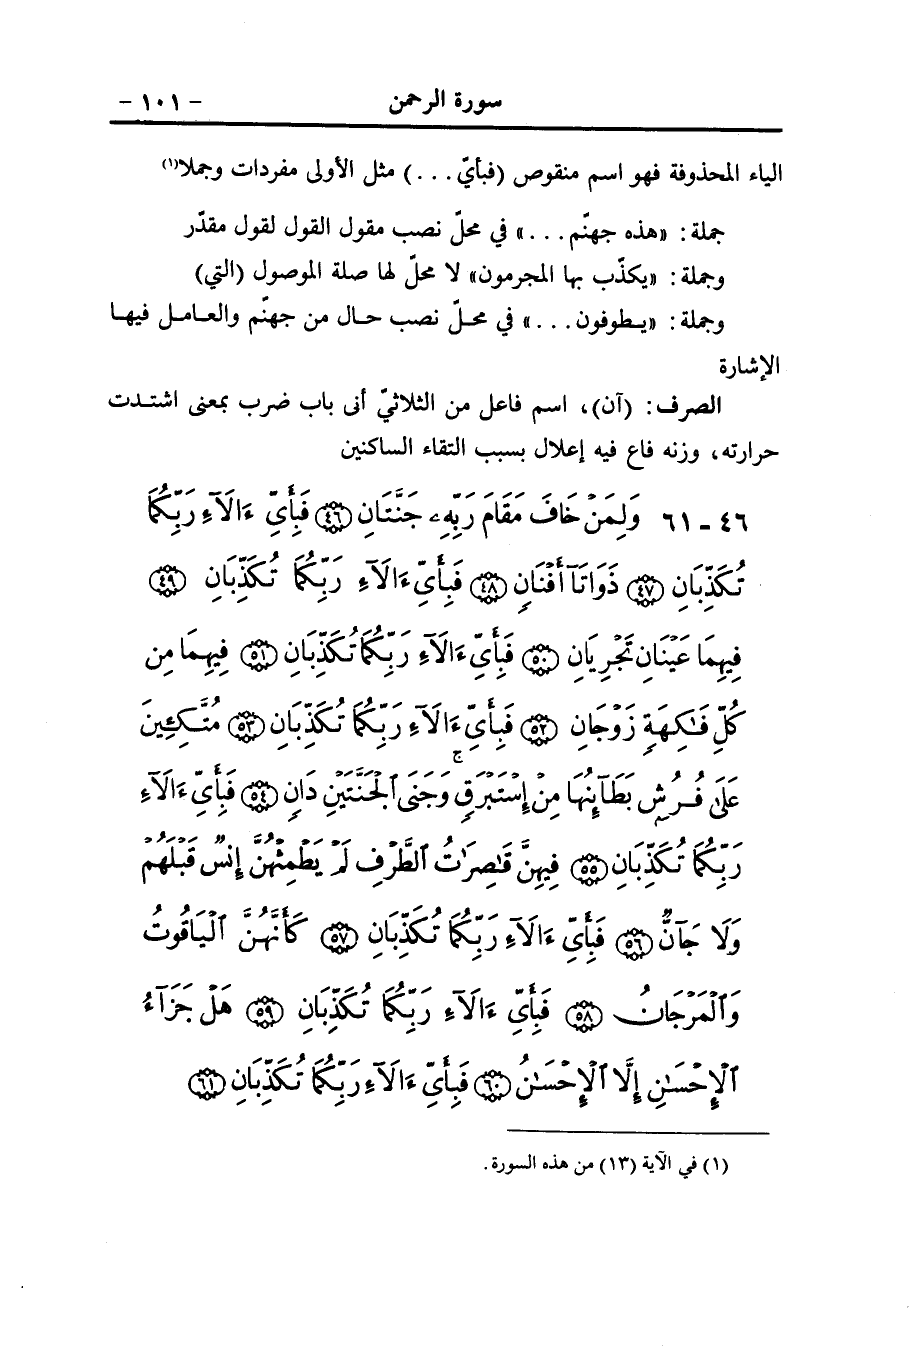 سورة الرحمن - ١٠١ -
الياء المحذوفة فهو اسم منقوص (فبأيّ . . .) مثل الأولى مفردات وجملا(١)
جملة: «هذه جهنّم . . .» في محلّ نصب مقول القول لقول مقدّر
وجملة: «يكذّب بها المجرمون» لا محلّ لها صلة الموصول (التي)
وجملة: «يـطوفون . . .» في محـلّ نصب حـال من جهنّم والعـامـل فيهـا
الإشارة
الصرف: (آن)، اسم فاعل من الثلاثيّ أنى باب ضرب بمعنى اشتـدت
حرارته، وزنه فاع فيه إعلال بسبب التقاء الساكنين
٤٦ - ٦١ وَلِمَنْ خَافَ مَقَامَ رَبِّهِۦ جَنَّتَانِ ٤٦ فَبِأَىِّ ءَالَآءِ رَبِّكُمَا
تُكَذِّبَانِ ٤٧ ذَوَاتَآ أَفْنَانٍ ٤٨ فَبِأَىِّ ءَالَآءِ رَبِّكُمَا تُكَذِّبَانِ ٤٩
فِيهِمَا عَيْنَانِ تَجْرِيَانِ ٥٠ فَبِأَىِّ ءَالَآءِ رَبِّكُمَا تُكَذِّبَانِ ٥١ فِيهِمَا مِن
كُلِّ فَـٰكِهَةٍ زَوْجَانِ ٥٢ فَبِأَىِّ ءَالَآءِ رَبِّكُمَا تُكَذِّبَانِ ٥٣ مُتَّكِـِٔينَ
عَلَىٰ فُـرُشٍۭ بَطَآئِنُهَا مِنْ إِسْتَبْرَقٍ ۚ وَجَنَى ٱلْجَنَّتَيْنِ دَانٍ ٥٤ فَبِأَىِّ ءَالَآءِ
رَبِّكُمَا تُكَذِّبَانِ ٥٥ فِيهِنَّ قَـٰصِرَٰتُ ٱلطَّرْفِ لَمْ يَطْمِثْهُنَّ إِنسٌ قَبْلَهُمْ
وَلَا جَآنٌّ ٥٦ فَبِأَىِّ ءَالَآءِ رَبِّكُمَا تُكَذِّبَانِ ٥٧ كَأَنَّهُنَّ ٱلْيَاقُوتُ
وَٱلْمَرْجَانُ ٥٨ فَبِأَىِّ ءَالَآءِ رَبِّكُمَا تُكَذِّبَانِ ٥٩ هَلْ جَزَآءُ
ٱلْإِحْسَـٰنِ إِلَّا ٱلْإِحْسَـٰنُ ٦٠ فَبِأَىِّ ءَالَآءِ رَبِّكُمَا تُكَذِّبَانِ ٦١
(١) في الآية (١٣) من هذه السورة.